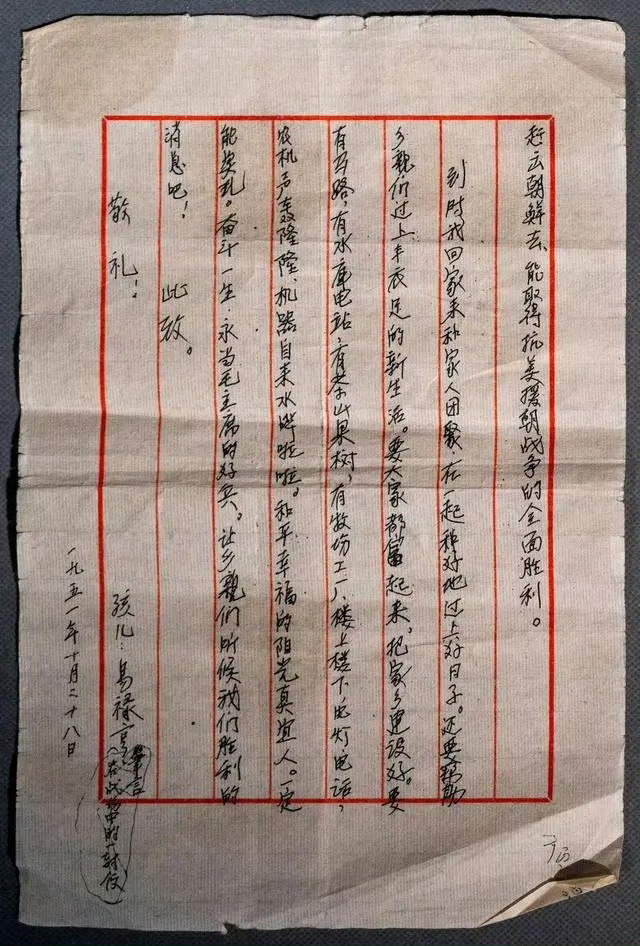 赶去朝鲜去、能取得抗美援朝战争的全面胜利。
到时我回家来和家人团聚.在一起种好地过上好日子。还要帮助
乡亲们过上丰衣足的新生活。要大家都富起来,把家乡建设好。要
有马路,有水库电站,有茶山果树,有牧场工厂、楼上楼下,电灯电话,
农机声轰隆隆、机器自来水哗啦啦。和平幸福的阳光真宜人。一定
能实现。奋斗一生.永当毛主席的好兵。让乡亲们听候我们胜利的
消息吧!
此致。
敬礼!
孩儿:易禄亨
(在战场中的一封信
一九五一年十月二十八日